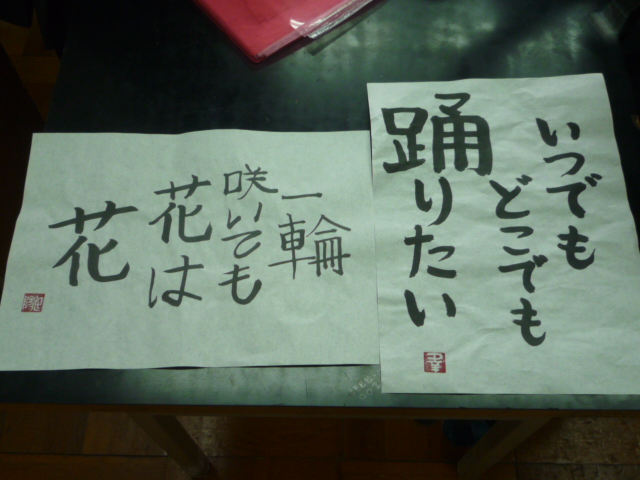 いつでも
どこでも
踊りたい
一輪
咲いても
花は
花